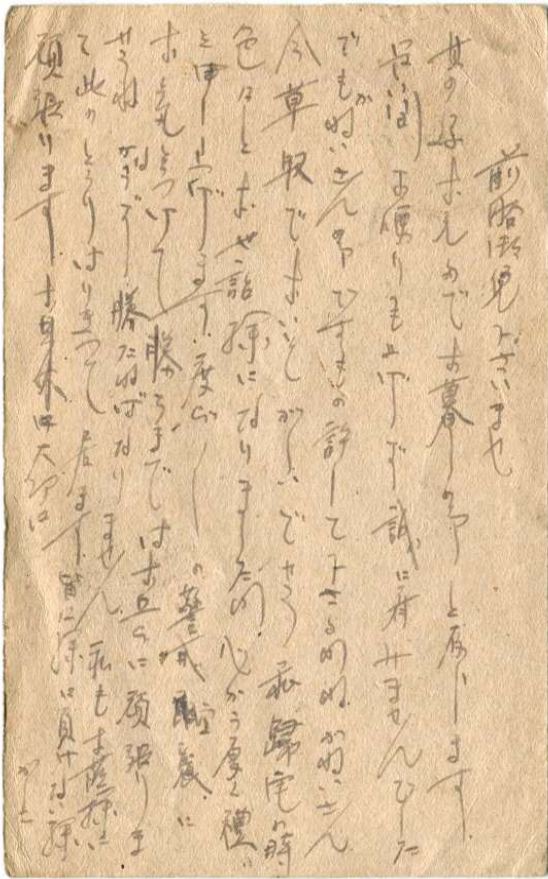 前略御免下さいませ
其の後お元気でお暮しの事と存じます
お便りも上げず誠に済みませんでした
でもねいさんの事ですもの許して下さるわね かねいさん
今草取でおいそがしいでせう 私歸宅の時
色々とお世話様になりました 心から厚く禮
を申し上げます 度々の警戒警報に
お気をつけて 勝つまではお互ひに頑張りま
せうね 勝たねばなりません 私もお蔭様に
て此のとうりはりきつて居ます 皆に負けない様
頑張ります